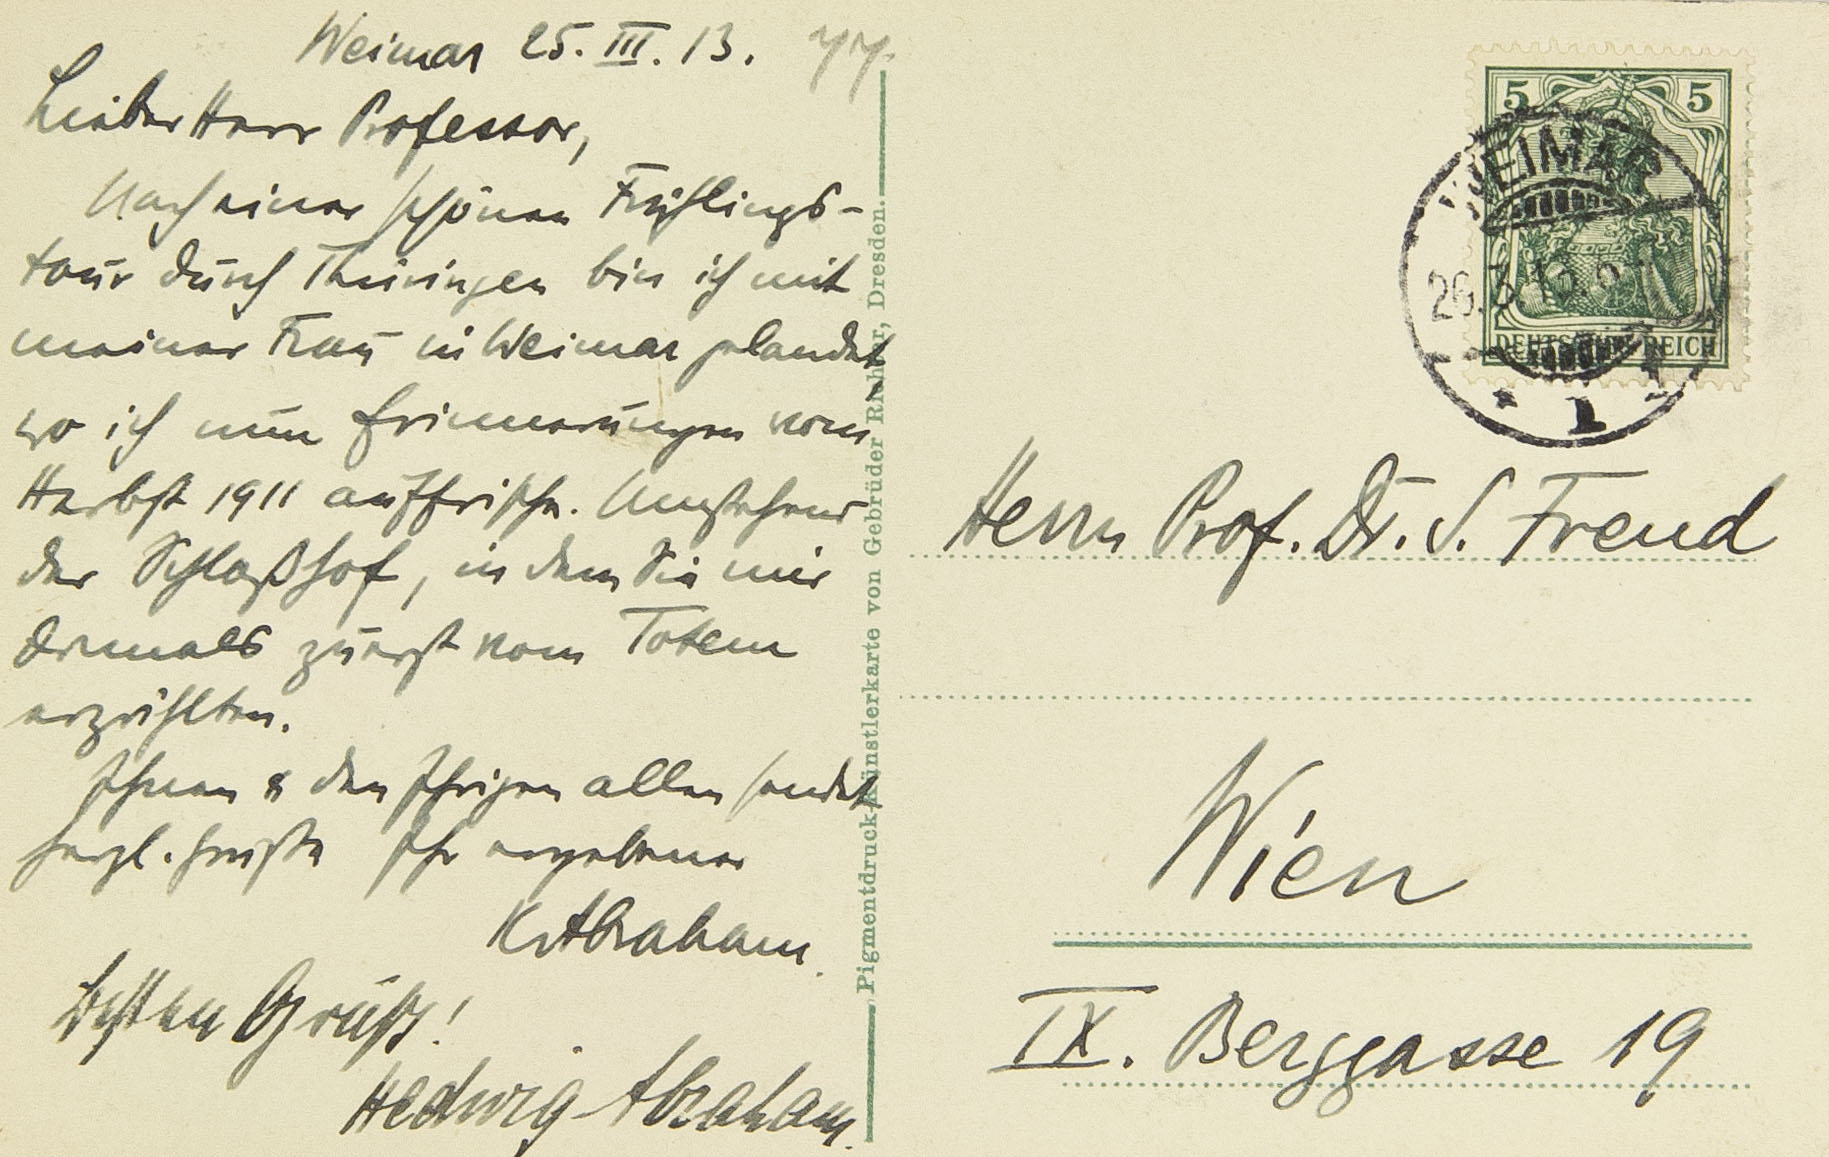 Weimar 25. III. 13.
Lieber Herr Professor,
Nach einer schönen Frühlings-
tour durch Thüringen bin ich mit
meiner Frau in Weimar gelandet,
wo ich nun Erinnerungen vom
Herbst 1911 auffrische. Umstehend
der Schloßhof, in dem Sie mir
damals zuerst vom Totem
erzählten.
Ihnen & den Ihrigen allen sendet
herzl. Grüße Ihr ergebener
K. Abraham.
Besten Gruß!
Hedwig Abraham.
Pigmentdruck-Künstlerkarte von Gebrüder Richter, Dresden.
5 5
DEUTSCHES REICH
WEIMAR
26.3.13.
* 1
Herrn Prof. Dr. S. Freud
Wien
IX. Berggasse 19